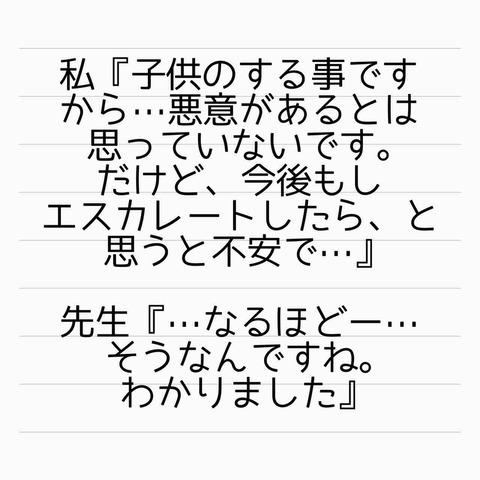 私『子供のする事です
から…悪意があるとは
思っていないです。
だけど、今後もし
エスカレートしたら、と
思うと不安で…』
先生『…なるほどー…
そうなんですね。
わかりました』